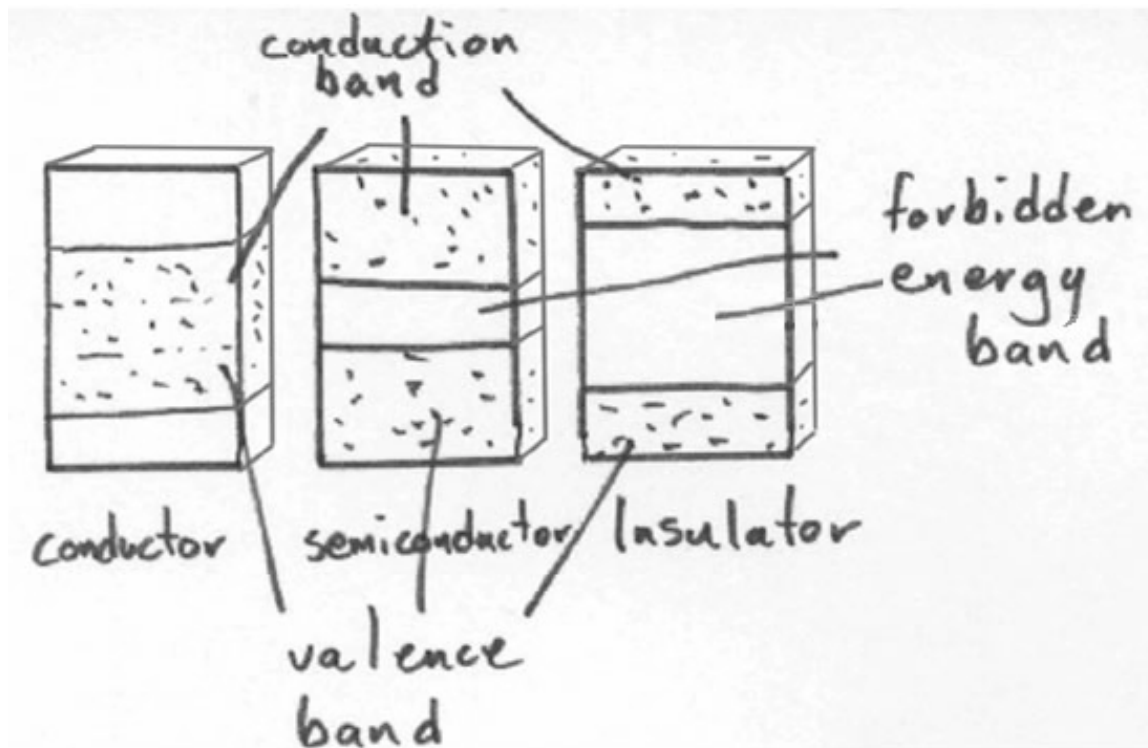 conduction
band
forbidden
energy
band
conductor
semiconductor
Insulator
valence
band